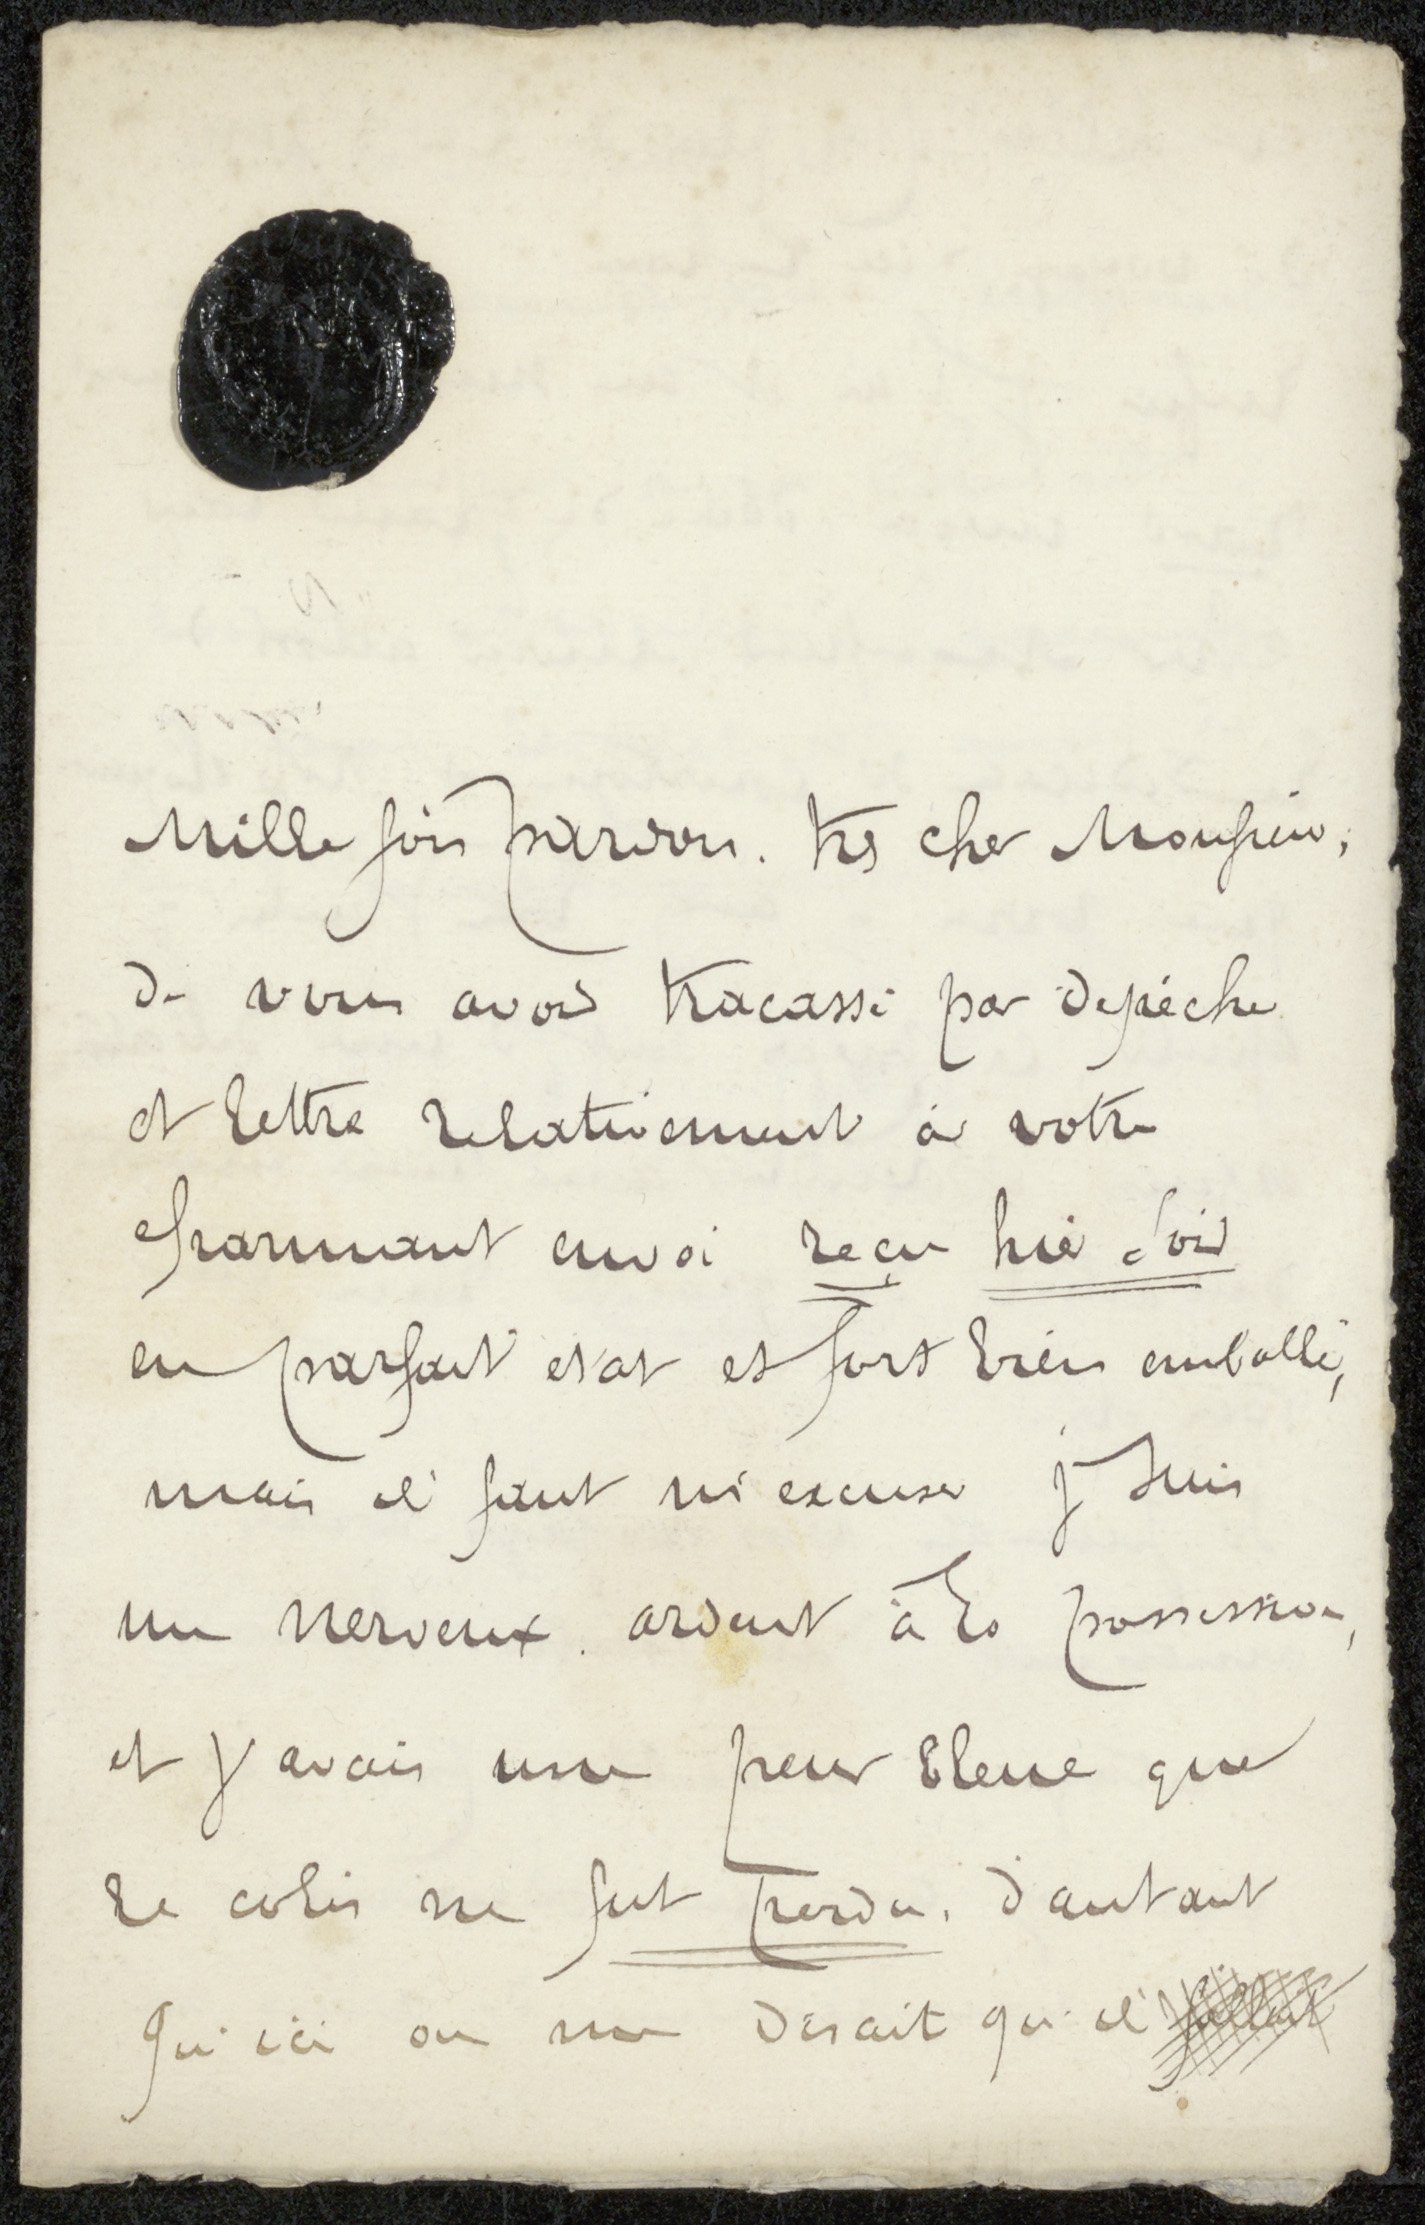 Mille fois pardon. très cher Monsieur,
de vous avoir tracassé par depêche
et lettre relativement à votre
charmant envoi reçu hier soir
en parfait etat et fort bien emballé,
mais il faut m'excuser je suis
un nerveux. ardent à la possession,
et j'avais une peur bleue que
le colis ne fut perdu, d'autant
qu'ici on me disait qu'il fallait